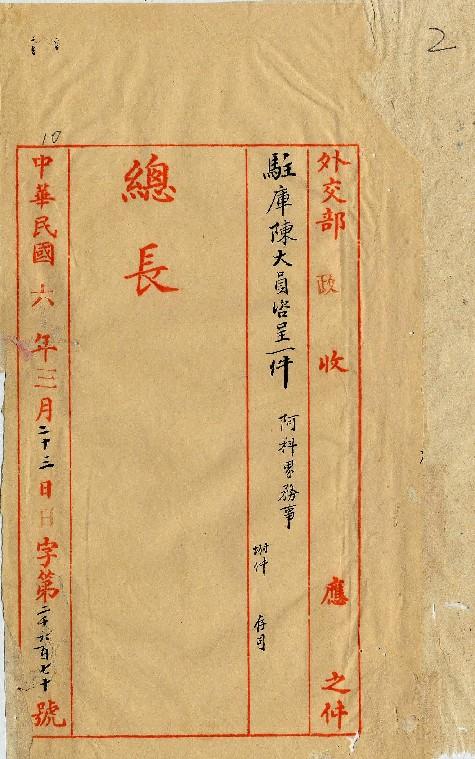 2
外交部 政 收 應 之件
駐庫陳大員咨呈一件 阿科界務事
附件 存司
總長
中華民國六年三月二十二日日字第二千六百七十號
10